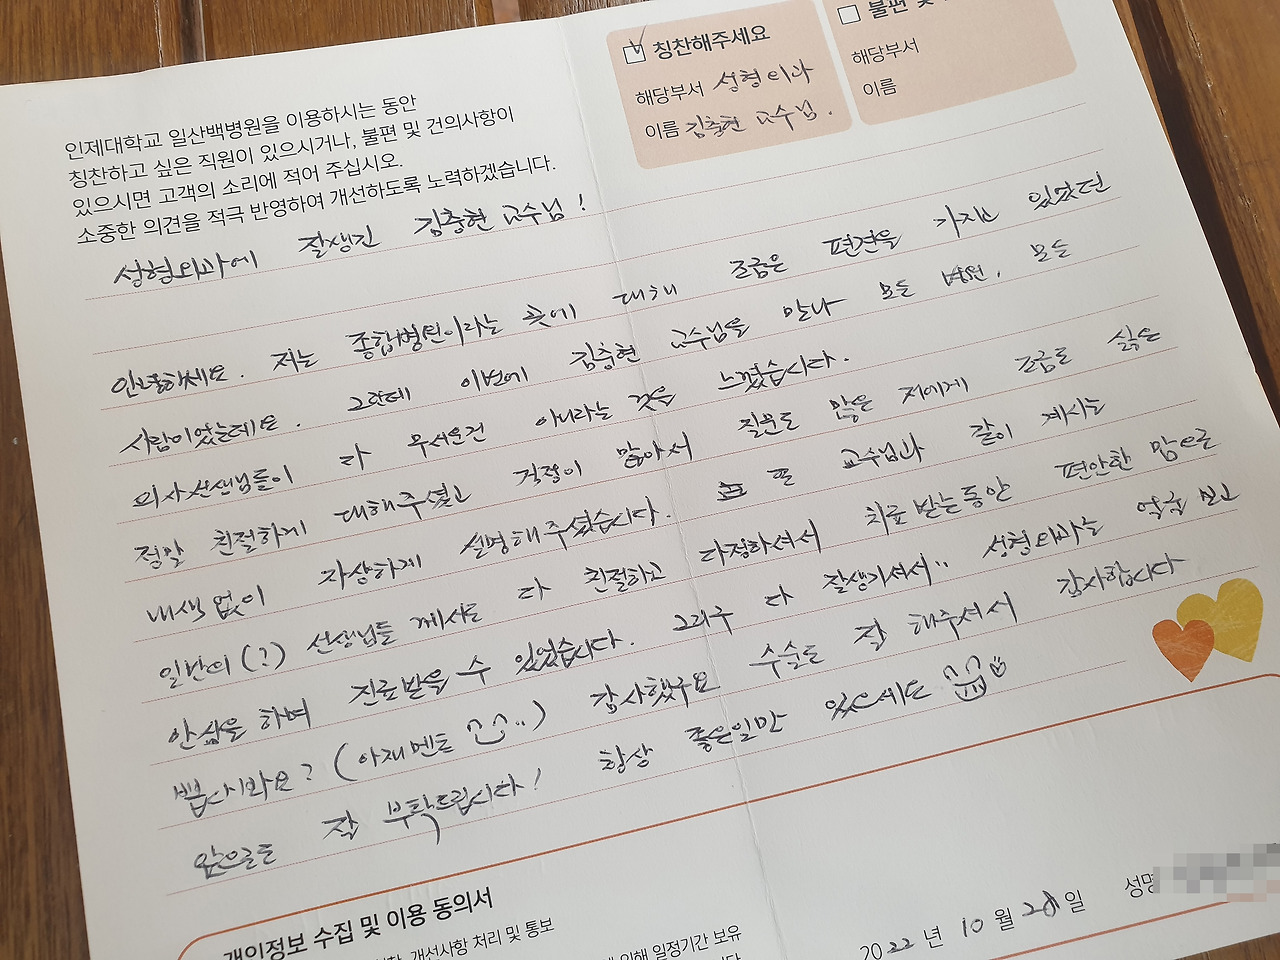 인제대학교 일산백병원을 이용하시는 동안
칭찬하고 싶은 직원이 있으시거나, 불편 및 건의사항이
있으시면 고객의 소리에 적어 주십시오.
소중한 의견을 적극 반영하여 개선하도록 노력하겠습니다.
칭찬해주세요
해당부서 성형외과
이름 김충현 교수님.
불편 및
해당부서
이름
성형외과에 잘생긴 김충현 교수님!
안녕하세요. 저는 종합병원이라는 곳에 대해 조금은 편견을 가지고 있었던
사람이었는데요. 그런데 이번에 김충현 교수님을 만나 모든 병원, 모든
의사선생님들이 다 무서운건 아니라는 것을 느꼈습니다.
정말 친절하게 대해주셨고 걱정이 많아서 질문도 많은 저에게 조금도 싫은
내색 없이 자상하게 설명해주셨습니다. 또 교수님과 같이 계시는
일반의(?) 선생님들 께서도 다 친절하고 다정하셔서 치료받는동안 편안한 맘으로
안심을 하며 진료받을 수 있었습니다. 그리구 다 잘생기셔서.. 성형외과는 얼굴 보고
뽑나봐요? (아재멘트 ..) 감사했구요 수술도 잘 해주셔서 감사합니다
앞으로도 잘 부탁드립니다! 항상 좋은일만 있으세요
개인정보 수집 및 이용 동의서
개선사항 처리 및 통보
의해 일정기간 보유
2022 년 10 월 28 일 성명